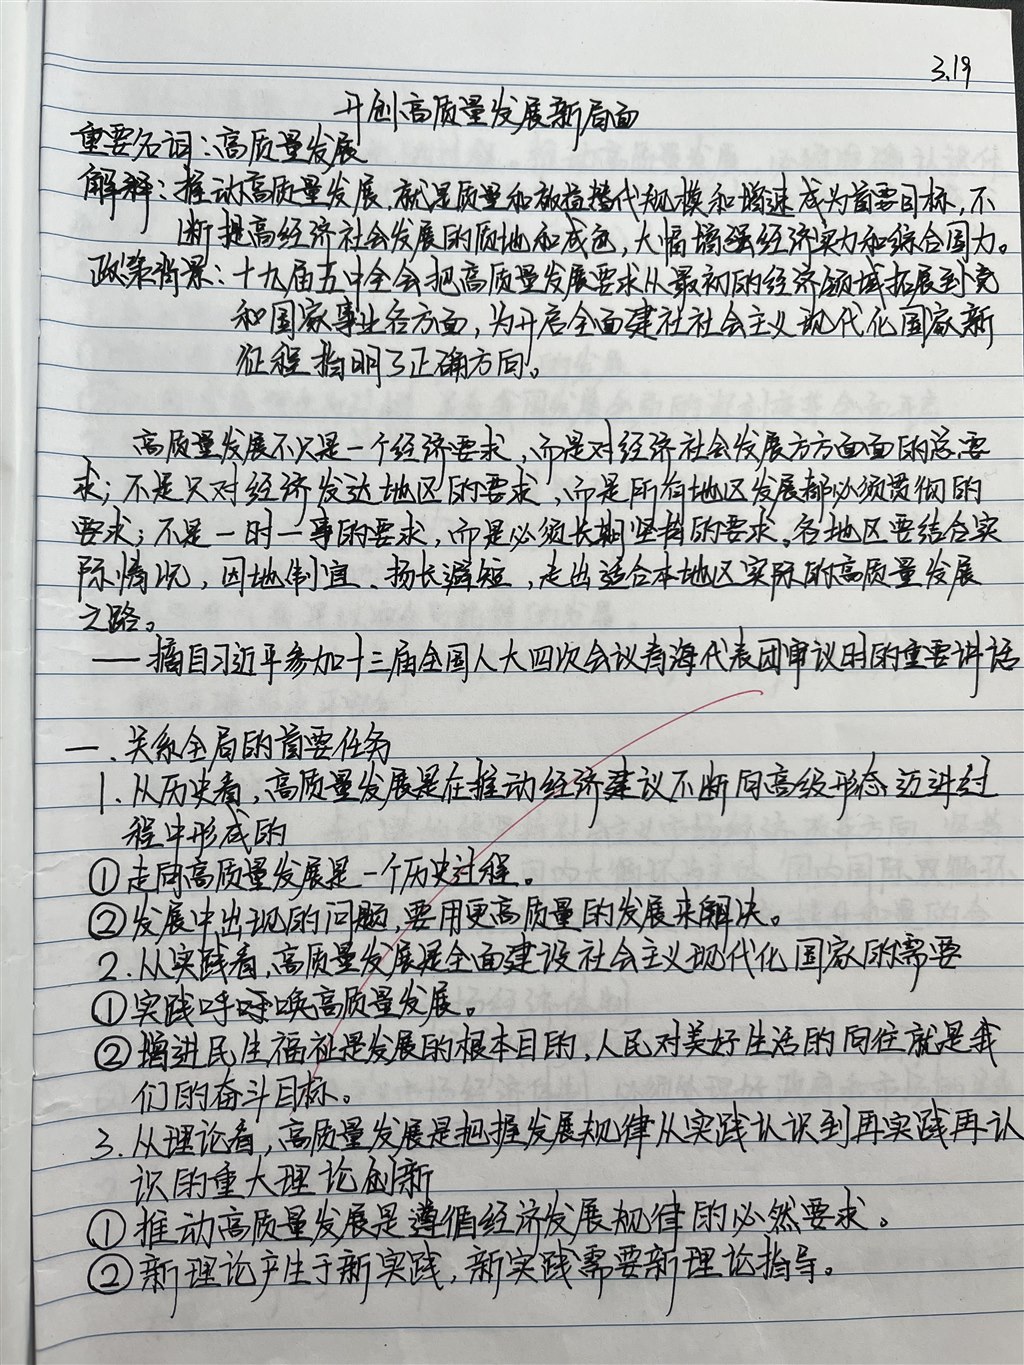 3.19
开创高质量发展新局面
重要名词：高质量发展
解释：推动高质量发展，就是质量和效益替代规模和增速成为首要目标，不
断提高经济社会发展的质地和成色，大幅增强经济实力和综合国力。
政策背景：十九届五中全会把高质量发展要求从最初的经济领域拓展到党
和国家事业各方面，为开启全面建社社会主义现代化国家新
征程指明了正确方向。
高质量发展不只是一个经济要求，而是对经济社会发展方方面面的总要
求；不是只对经济发达地区的要求，而是所有地区发展都必须贯彻的
要求；不是一时一事的要求，而是必须长期坚持的要求。各地区要结合实
际情况，因地制宜、扬长避短，走出适合本地区实际的高质量发展
之路。
——摘自习近平参加十三届全国人大四次会议青海代表团审议时的重要讲话
一、关系全局的首要任务
1.从历史看，高质量发展是在推动经济建议不断向高级形态迈进过
程中形成的
①走向高质量发展是一个历史过程。
②发展中出现的问题，要用更高质量的发展来解决。
2.从实践看，高质量发展是全面建设社会主义现代化国家的需要
①实践呼呼唤高质量发展。
②增进民生福祉是发展的根本目的，人民对美好生活的向往就是我
们的奋斗目标。
3.从理论看，高质量发展是把握发展规律从实践认识到再实践再认
识的重大理论创新
①推动高质量发展是遵循经济发展规律的必然要求。
②新理论产生于新实践，新实践需要新理论指导。